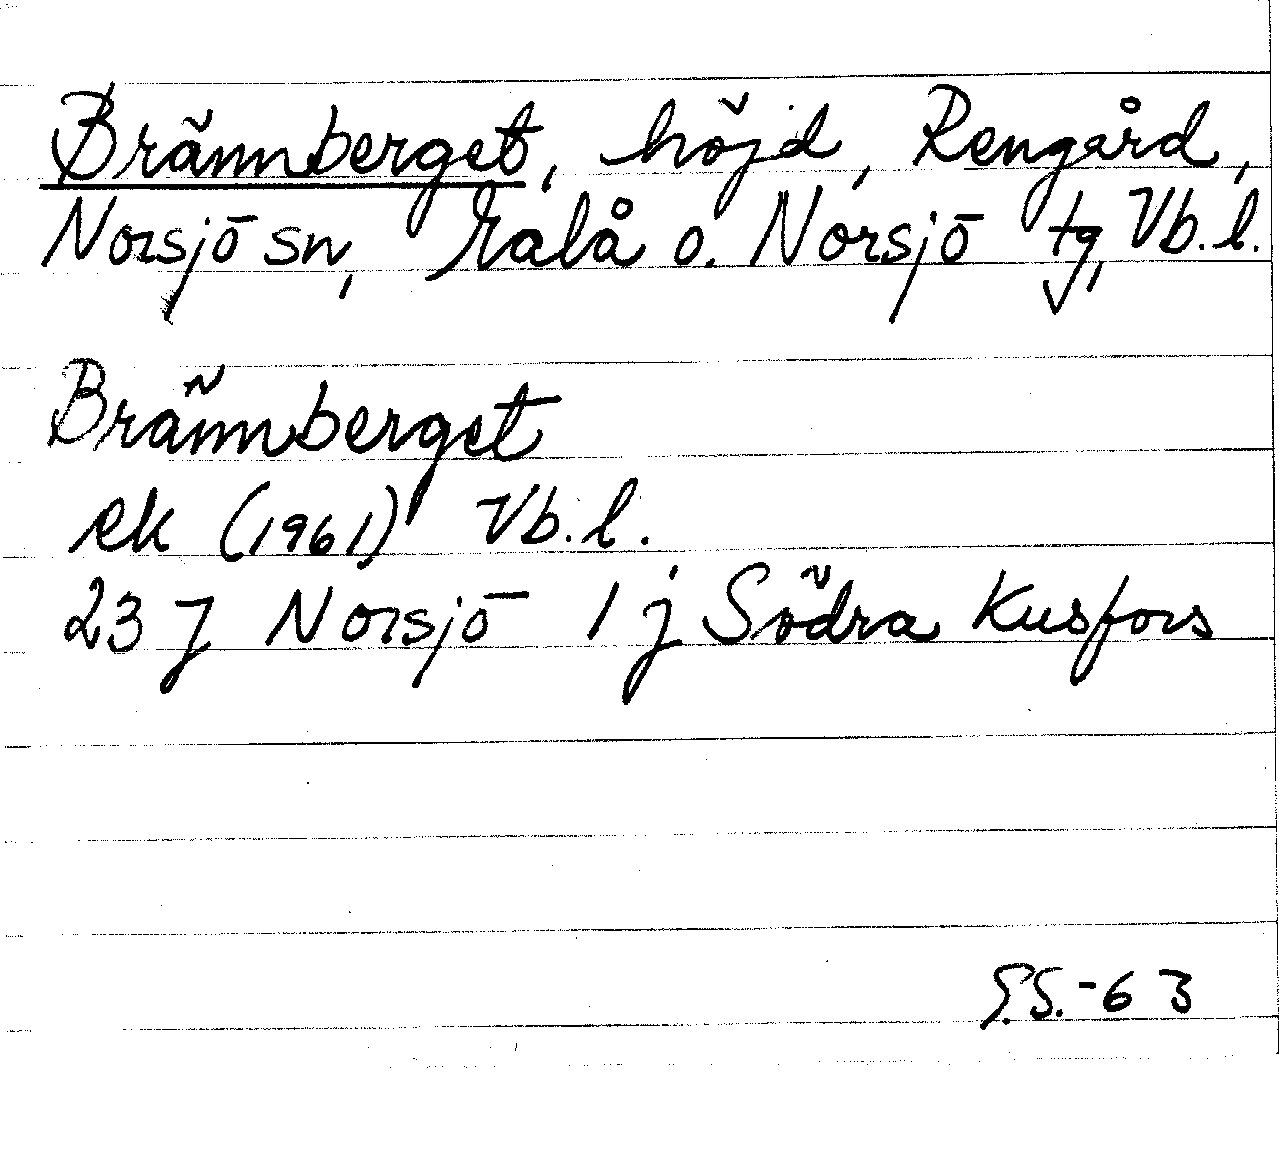 Brännberget, höjd, Rengård,
Norsjö sn, Malå o. Norsjö tg, Vb.l.
Brännberget
ek (1961) Vb.l.
23 J Norsjö 1 j Södra Kusfors
S.S.-63